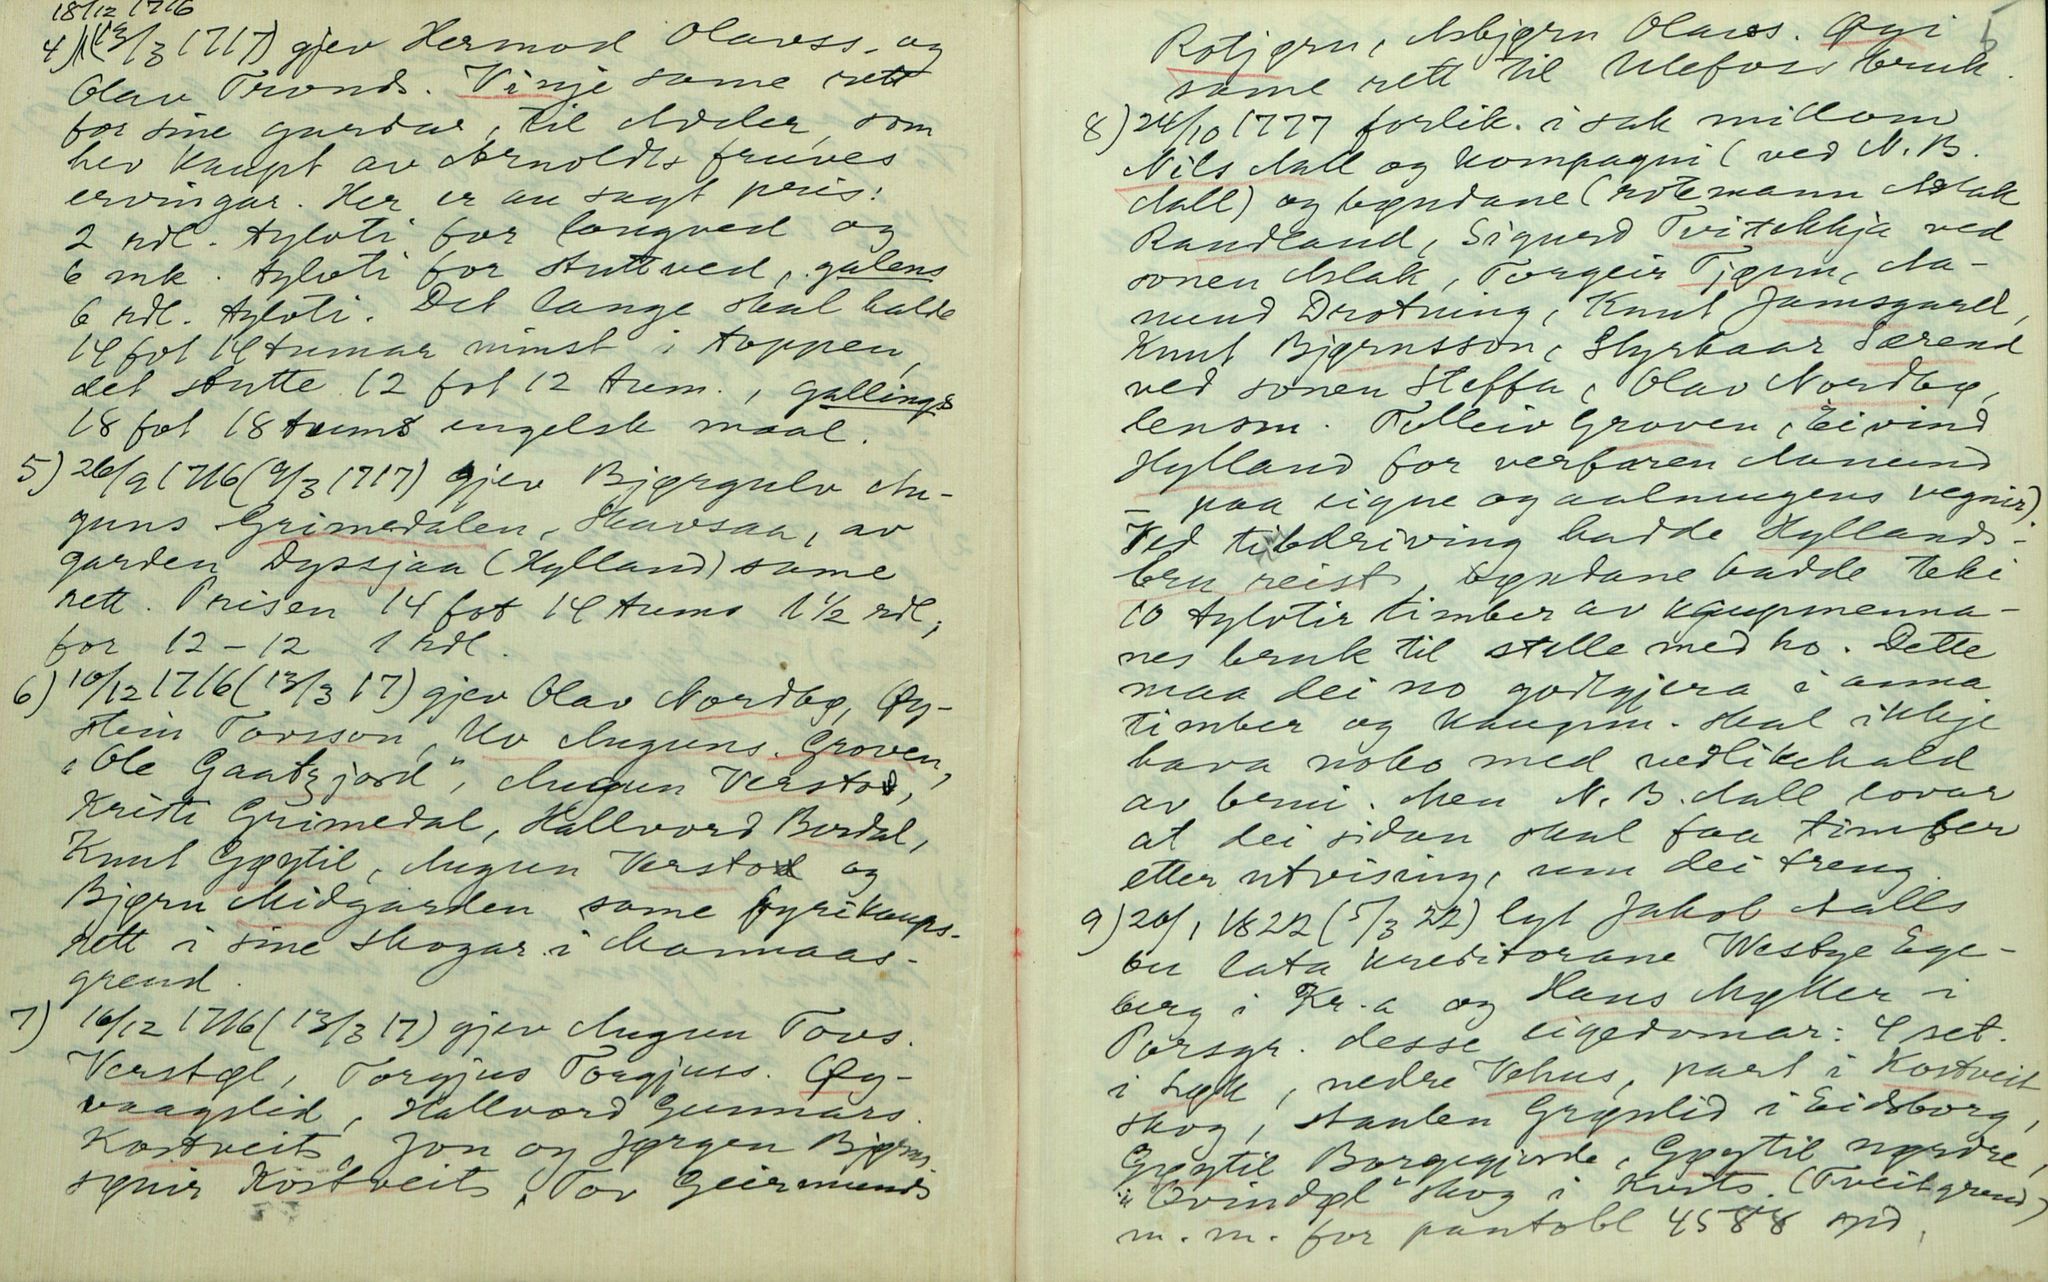 18/12 1716
4) (13/3 1717) gjev Hermod Olavss. og
Olav Tronds. Vinje same rett
for sine gardar, til Adeler, som
hev kaupt av Arnoldts frues
ervingar. Her er au sagt pris:
2 rdl. tylvti for langved og
6 mk. tylvti for stuttved, galens
6 rdl. tylvti. Det lange skal halde
14 fot 14 tumar minst i toppen,
det stutte 12 fot 12 tum., gallings
18 fot 18 tums engelsk maal.
5) 26/9 1716 (9/3 1717) gjev Bjørgulv Au-
guns Grimedalen, Skavsaa, av
garden Dyssjaa (Hylland) same
rett. Prisen 14 fot 14 tums 1 1/2 rdl,
for 12 - 12 1 rdl.
6) 10/12 1716 (13/3 17) gjev Olav Nordbø, Øy-
stein Tovsson, Uv Auguns. Groven,
"Ole Gaatzjord", Augun Verstod,
Kristi Grimedal, Hallvord Bordal,
Knut Gøytil, Augun Verstod og
Bjørn Midgarden same fyrikaups-
rett i sine skogar i Mannaas-
grend.
7) 16/12 1716 (13/3 17) gjev Augun Tovs.
Verstøl, Torgjus Torgjuss. Øy-
vaagslid, Hallvord Gunnars.
Kostveit, Jon og Jørgen Bjørns
sønir Kostveit, Tov Geirmunds
5
Rotjørn, Asbjørn Olavs. Øyi
same rett til Ulefoss bruk.
8) 24/10 1777 forlik i sak millom
Nils Aall og kompagni (ved N. B.
Aall) og bøndane (rotemann Aslak
Randland, Sigurd Tvitekkja ved
sonen Aslak, Torgeir Tjønn, Aa-
mund Drotning, Knut Jamsgard,
Knut Bjørnsson, Styrkaar Særend
ved sonen Steffa, Olav Nordbø,
lensm. Tolleiv Groven, Eivind
Hylland for verfaren Aamund
- paa eigne og aalmugens vegnir).
Ved tilbdriving hadde Hyllands-
bru reist, bøndane hadde teki
10 tylvtir timber av kaupmenna-
nes bruk til stelle med ho. Dette
maa dei no godtgjera i anna
timber og kaupm. skal ikkje
hava noko med vedlikehald
av brui. Men N. B. Aall lovar
at dei sidan skal faa timber
etter utvising, um dei treng.
9) 20/1 1822 (5/3 22) lyt Jakob Aalls
bu lata kreditorane Westye Ege-
berg i Kr.a og Hans Møller i
Porsgr. desse eigedomar: 4 set.
i Løk, nedre Vehus, part i Kostveit
skog, staulen Grønlid i Eidsborg,
Gøytil Borgegjorde, Gøytil nørdre,
"Ovindøl" skog i Kvits. (Tveitgrend)
m. m. for pantobl 4588 spd.